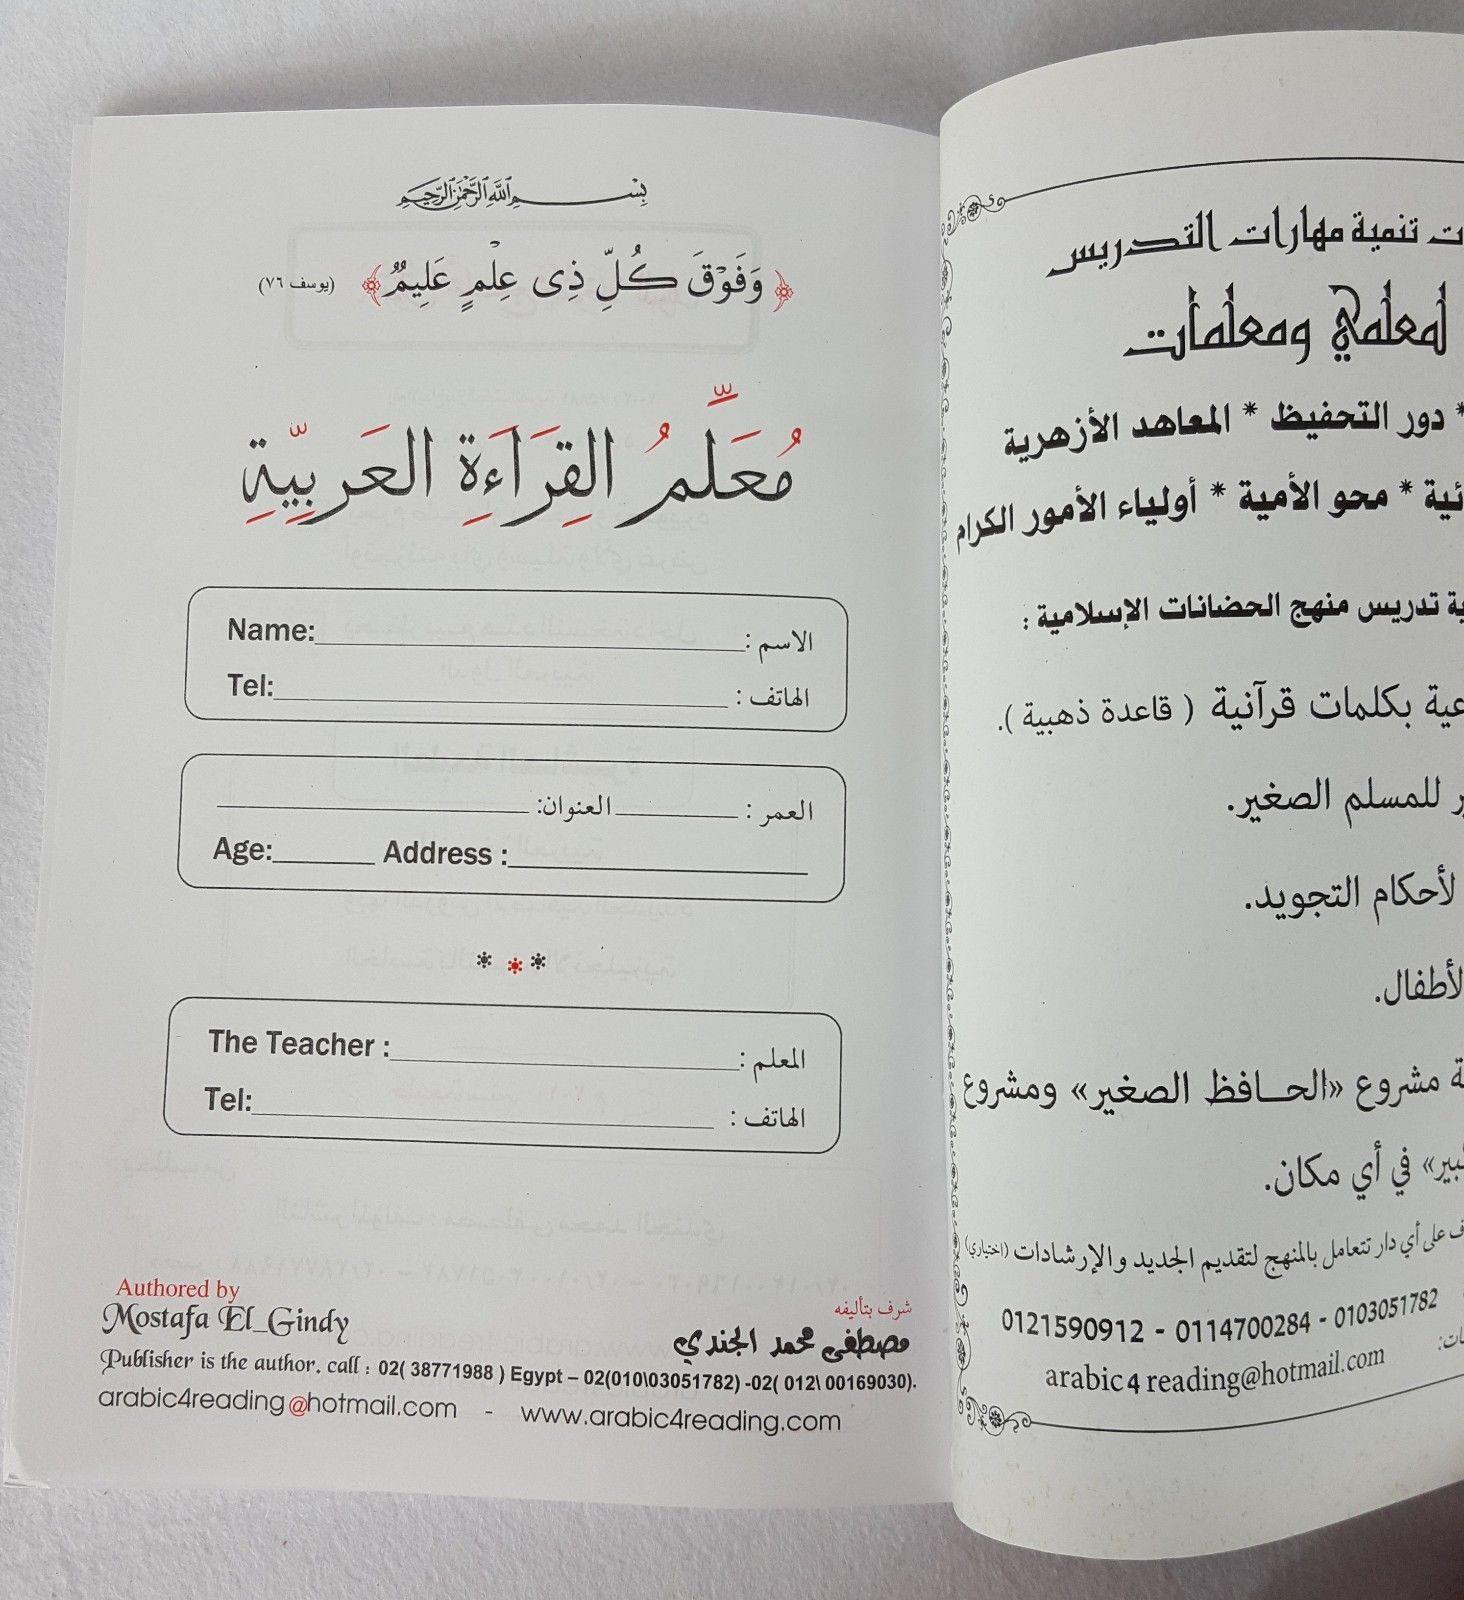 بِسْمِ اللَّهِ الرَّحْمَٰنِ الرَّحِيمِ
﴿وَفَوْقَ كُلِّ ذِى عِلْمٍ عَلِيمٌ﴾ (يوسف ٧٦)
مُعَلِّمُ القِرَاءَةِ العَرَبِيَّةِ
Name: الاسم :
Tel: الهاتف :
العمر : العنوان:
Age: Address :
The Teacher : المعلم :
Tel: الهاتف :
Authored by
Mostafa El_Gindy
شرف بتأليفه
مصطفى محمد الجندي
Publisher is the author. call : 02( 38771988 ) Egypt – 02(010\03051782) -02( 012\ 00169030).
arabic4reading@hotmail.com - www.arabic4reading.com
تنمية مهارات التدريس
لمعلمي ومعلمات
* دور التحفيظ * المعاهد الأزهرية
* محو الأمية * أولياء الأمور الكرام
تدريس منهج الحضانات الإسلامية :
بكلمات قرآنية ( قاعدة ذهبية ).
للمسلم الصغير.
لأحكام التجويد.
الأطفال.
مشروع «الحافظ الصغير» ومشروع
في أي مكان.
على أي دار تتعامل بالمنهج لتقديم الجديد والإرشادات (اختياري)
0121590912 - 0114700284 - 0103051782
arabic4reading@hotmail.com